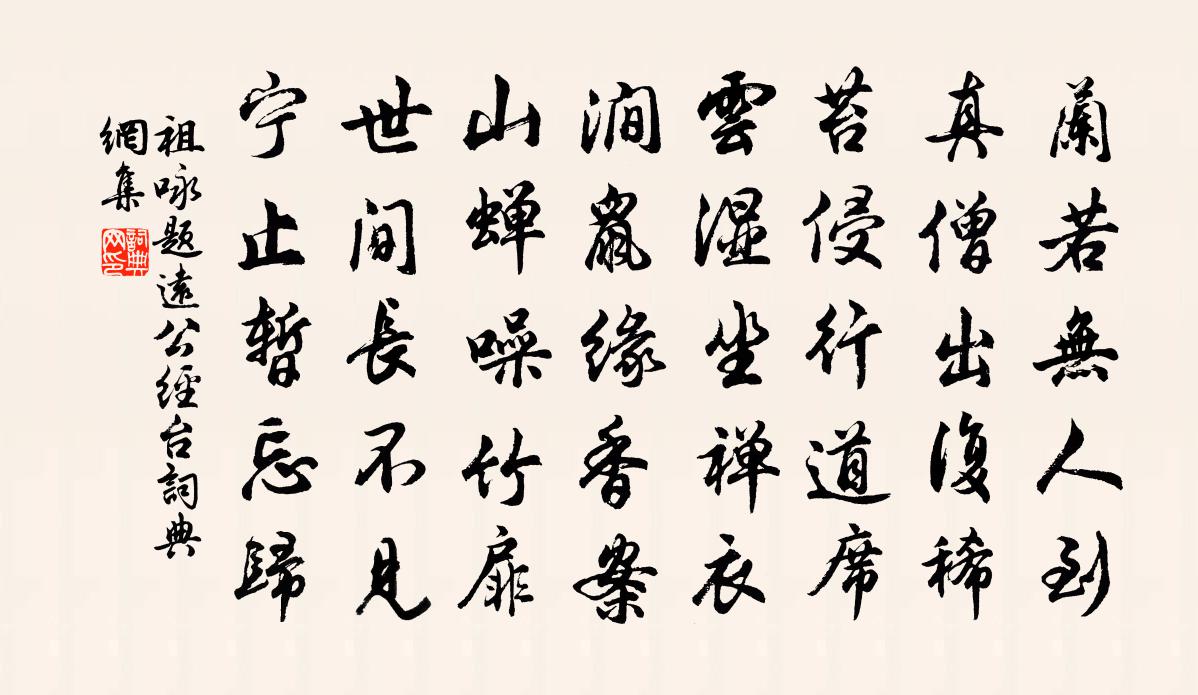 蘭若無人到
真僧出復稀
苔侵行道席
雲湿坐禅衣
澗鼠緣香案
山蝉噪竹扉
世间長不見
宁止暫忘歸
祖咏题遠公經台詞典
網集
詞典網印